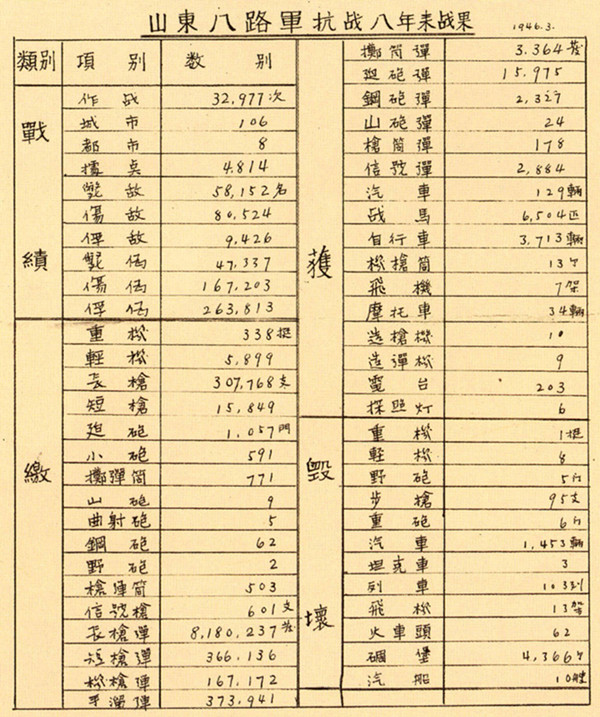 山東八路軍抗战八年来战果 1946.3.
類別 項別 数別
戰績
作战 32,977次
城市 106
都市 8
擄卓 4,814
斃敌 58,152名
傷敌 80,524
俘敌 9,426
斃偽 47,337
傷偽 167,203
俘偽 263,813
繳
重机 338挺
軽机 5,899
長槍 307,768支
短槍 15,849
廹砲 1,057門
小砲 591
擲彈筒 771
山砲 9
曲射砲 5
鋼砲 62
野砲 2
槍彈筒 503
信號槍 601支
長槍彈 8,180,237发
短槍彈 366,136
机槍彈 167,172
手溜彈 373,941
獲
擲筒彈 3,364发
廹砲彈 15,975
鋼砲彈 2,327
山砲彈 24
槍筒彈 178
信號彈 2,884
汽車 129輛
战馬 6,504匹
自行車 3,713輛
机槍筒 13个
飛機 7架
摩托車 34輛
造槍機 10
造彈机 9
電台 203
探照灯 6
毀壞
重机 1挺
軽机 8
野砲 5门
步槍 95支
重砲 6门
汽車 1,453輛
坦克車 3
列車 103列
飛机 13架
火車頭 62
碉堡 4,366个
汽船 10艘